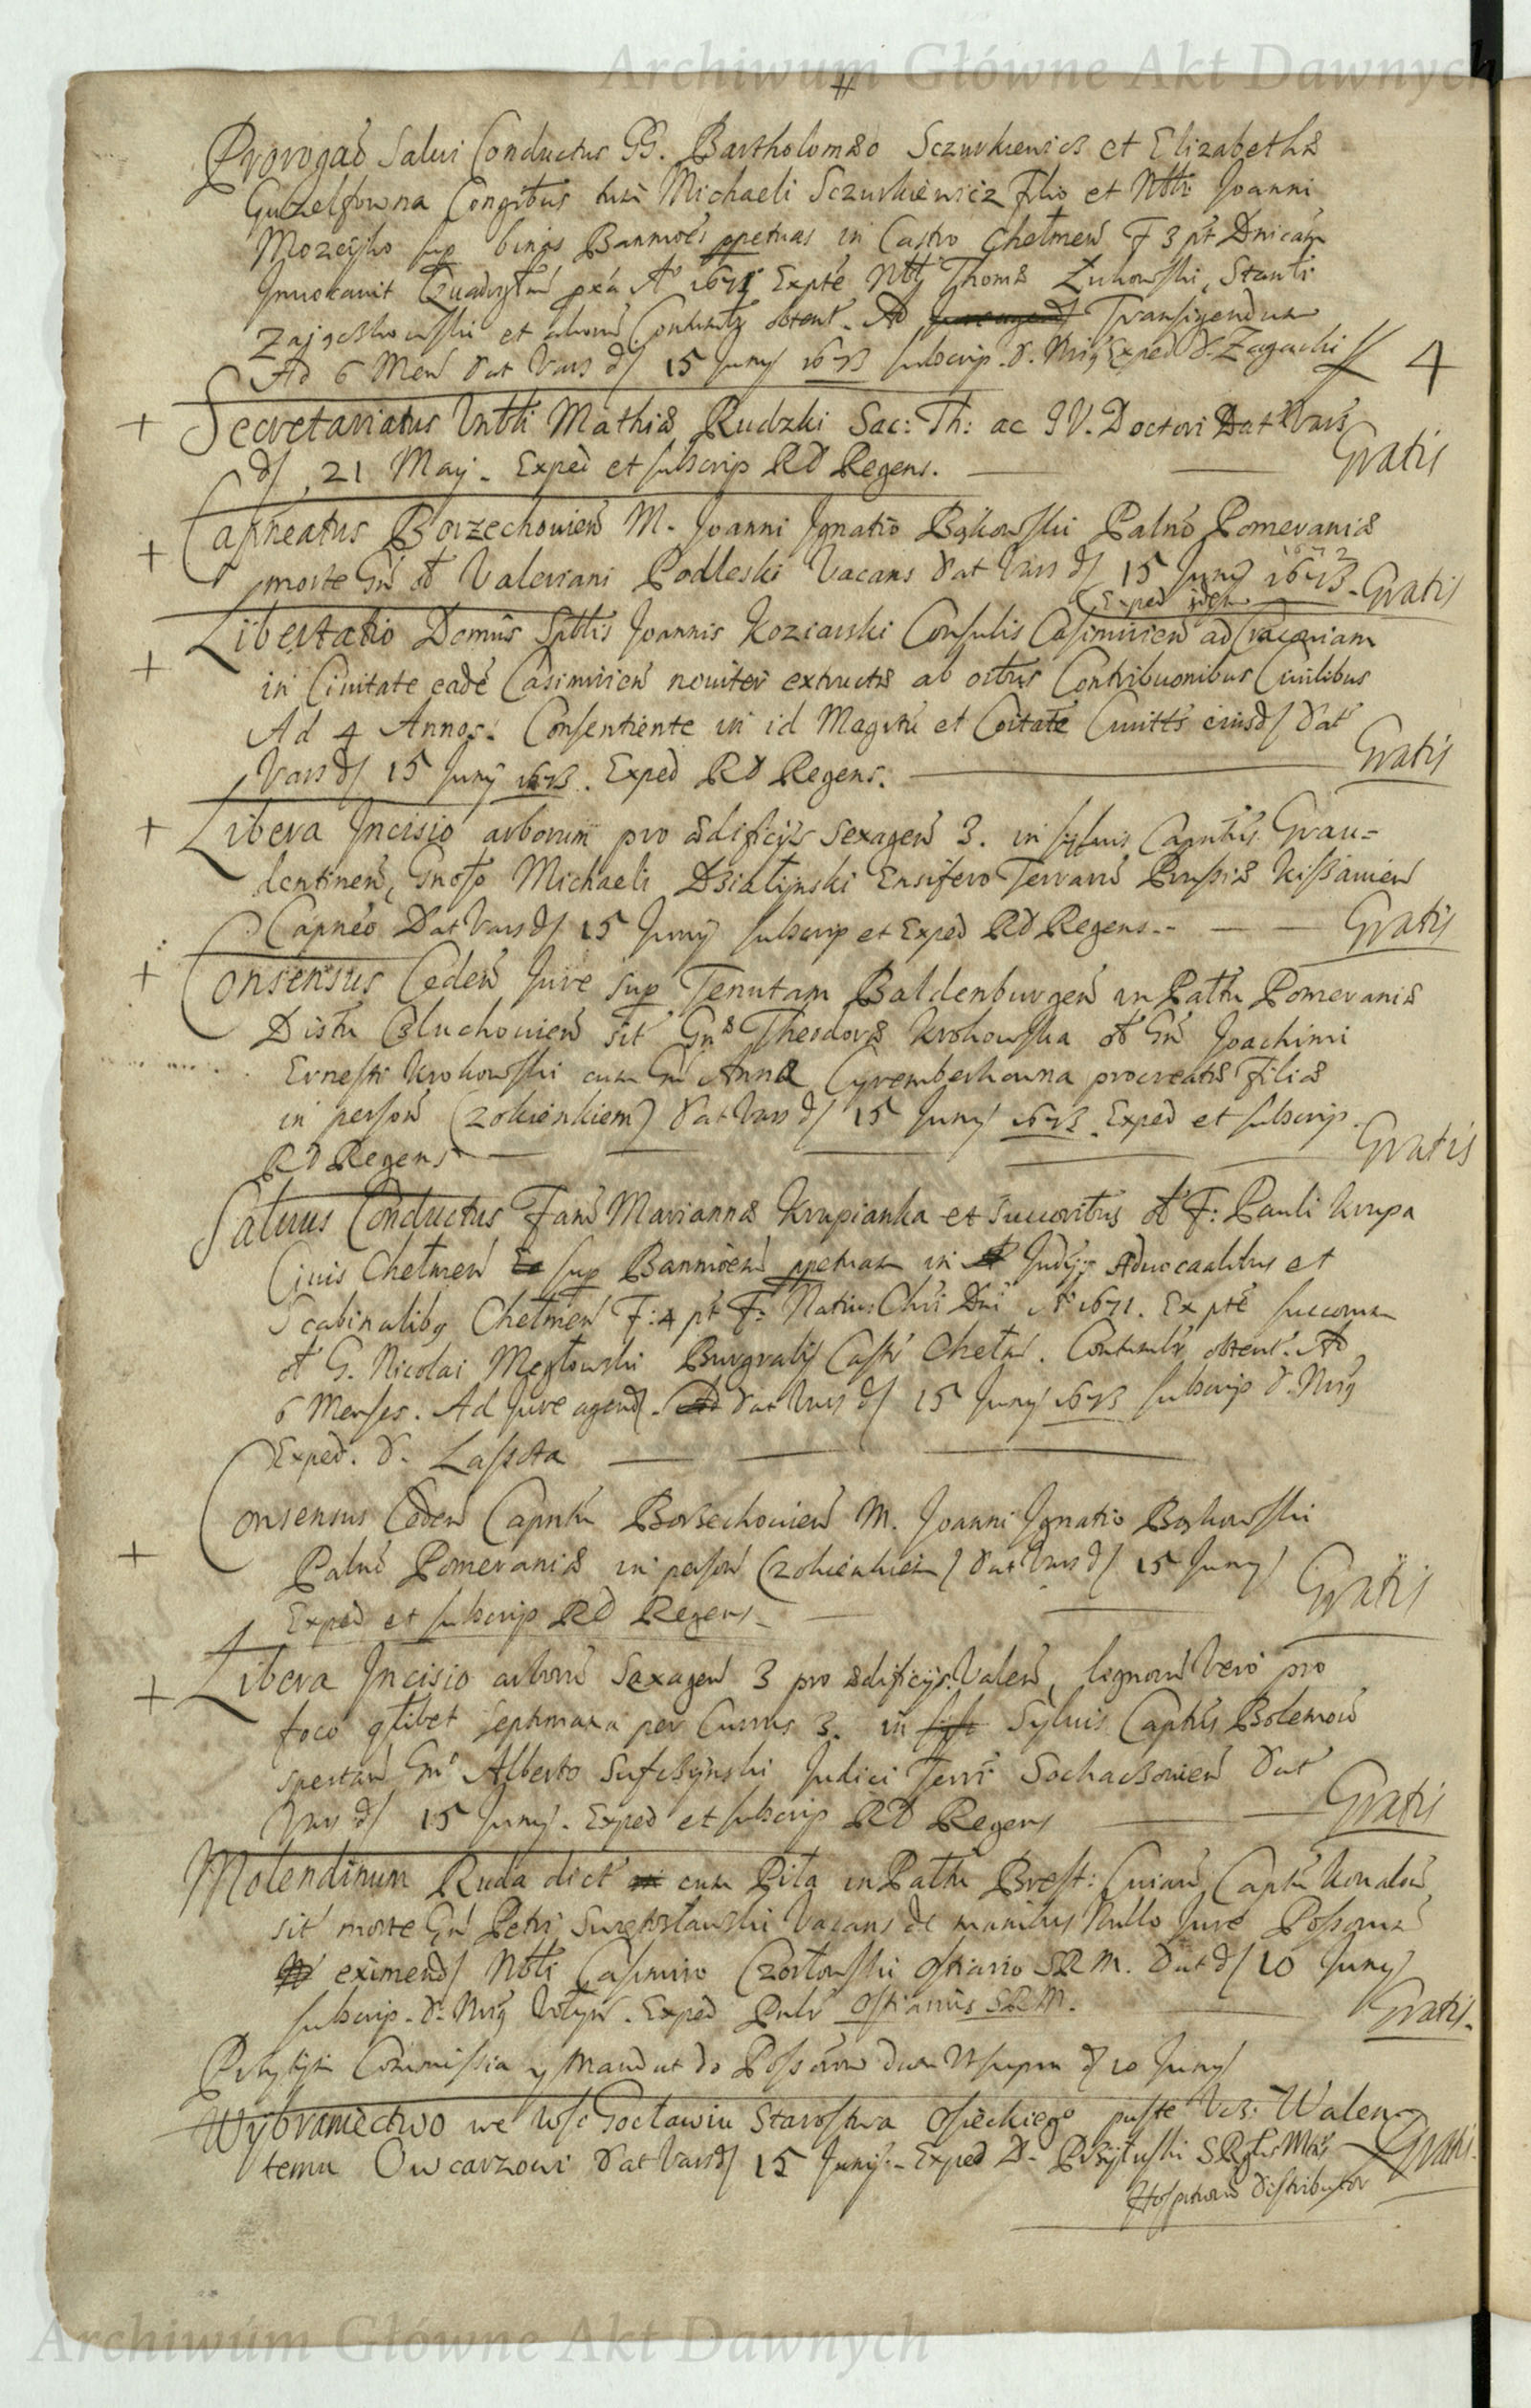 Archiwum Główne Akt Dawnych
Prorogaõ Salui Conductus GG. Bartholomæo Sczurkiewicz et Elizabethæ
Congibus Michaeli Sczurkiewicz filio et Nbli Joanni
sup binas Bannioēs ppetuas in Castro Chełmeñ F 3 pt Dnicam
Inuocauit A° 1671 Expte Nbly Thomæ Żukowski, Stanłi
et aliorū obtent. Ad Transigendum
Ad 6 Men Dat Vars d/ 15 Juny 1673 subscrip. D. Expêd D. Zagacki 4
+ Secretariatus Vnbli Mathiæ Rudzki Sac: Th: ac I V. Doctori Dat Vars
d/ 21 Maij. Expêd et subscrip RD Regens. Gratis
+ Capneatus Borzechouieñ M. Joanni Ignatio Bąkowski Palno Pomeraniæ
morte Gñ ol Valeriani Podleski Vacans Dat Vars d/ 15 Juny 1673. Gratis
Exped idem
+ Libertatio Domûs Spttis Joannis Koziarski Consulis Casimirieñ ad Cracouiam
in Ciuitate eadē Casimirieñ nouiter extructæ ab oibus Contribuonibus Ciuilibus
Ad 4 Annos. Consentiente in id Magrtu et Coitate Ciuitts eiusd/ Dat
Vars d/ 15 Juny 1673. Expêd RD Regens. Gratis
+ Libera Incisio arborum pro ædificijs sexageñ 3. in syluis Capntus Grau=
dentineñ, Gnoso Michaeli Działynski Ensifero Terrarū Prussiæ Kiszauieñ
Capneo Dat Vars d/ 15 Juny subscrip et Exped RD Regens. Gratis
+ Consensus Cedeñ Jure sup Tenutam Baldenburgeñ in Pałtu Pomeraniæ
Distu Człuchouieñ sit Gnæ Theodoræ Krokowska ol Gñ Joachimi
Ernesti Krokowski cum Gñ Anna procreatæ Filiæ
in persoñ (zokienkiem) Dat Vars d/ 15 Juny 1673. Exped et subscrip.
RD Regens Gratis
Saluus Conductus Fanæ Mariannæ Krupianka et Succoribus ol F: Pauli Krupa
Ciuis Chełmeñ sup Bannioem ppetuam in Judijs Aduocaalibus et
Scabinalibq Chełmeñ F: 4 pt F: Natius Chri Dni A° 1671. Ex pte succorum
ol G. Nicolai Męłowski Burgrabij Castri Chełm. obtent. Ad
6 Menses. Ad Jure agend. Dat Vars d/ 15 Juny 1673 subscrip D.
Exped. D. Lassota
+ Consensus Cedeñ Capntu Borzechouieñ M. Joanni Ignatio Bąkowski
Palno Pomeraniæ in persoñ (zokienkiem) Dat Vars d/ 15 Juny
Exped et subscrip RD Regens Gratis
+ Libera Incisio arborū Sexageñ 3 pro ædificijs Valeñ, lignorū Vero pro
foco qlibet septimana per Currus 3. in Syluis Captus Bolemoñ
spectañ Gno Alberto Judici Terri Sochaczouieñ Dat
Vars d/ 15 Juny. Exped et subscrip RD Regens Gratis
Molendinum Ruda dict cum Piła in Pałtu Brest: Cuiau Captu Konaloñ
sit morte Gñ Petri Vacans de manibus Nullo Jure
eximend/ Nbli Casimiro Czorłowski Ostiario SRM. Dat d/ 10 Juny
subscrip. D. Exped Ostiarius SRM. Gratis.
Przytym Commissia y Mandat do Possõrow Dam Vt supra d/ 10 Juny
Wybraniectwo we wsi Gocławiu Starostwa Osieckiego puste Vcz: Walen=
temu Owcarzowi Dat Vars d/ 15 Juny. Exped D. Przyłuski Gratis
Hospitiorū Distributor
Archiwum Główne Akt Dawnych